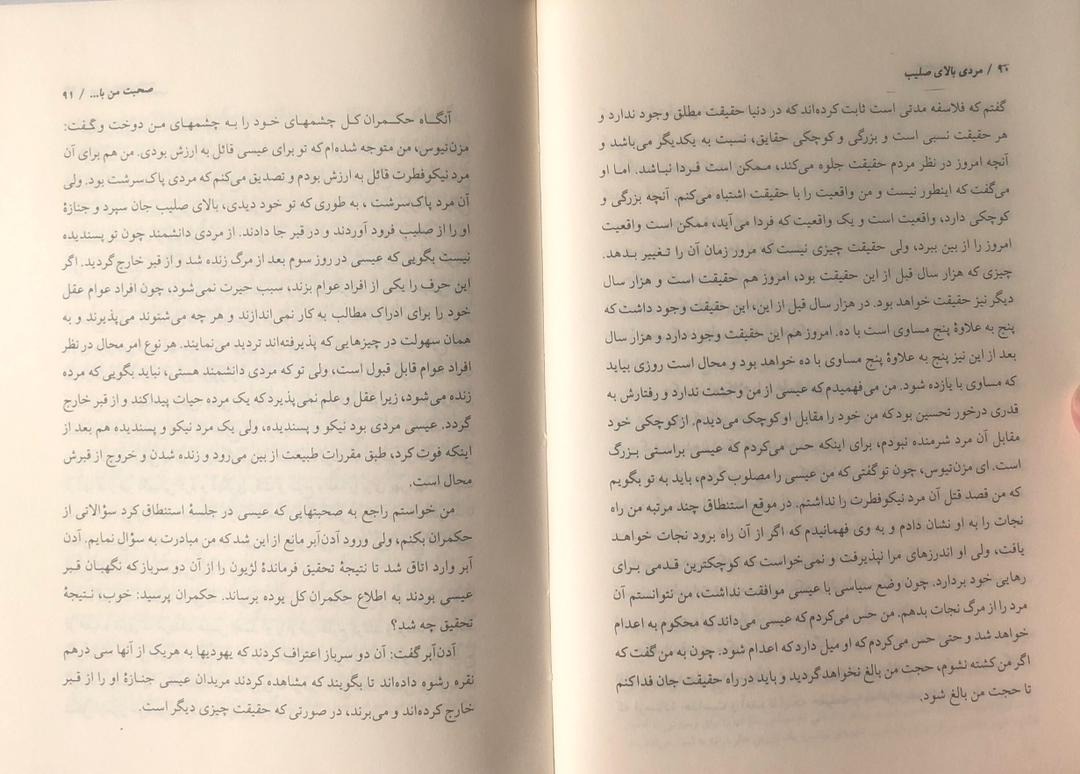 ۹۰ / مردی بالای صلیب
گفتم که فلاسفه مدتی است ثابت کرده‌اند که در دنیا حقیقت مطلق وجود ندارد و
هر حقیقت نسبی است و بزرگی و کوچکی حقایق، نسبت به یکدیگر می‌باشد و
آنچه امروز در نظر مردم حقیقت جلوه می‌کند، ممکن است فردا نباشد. اما او
می‌گفت که اینطور نیست و من واقعیت را با حقیقت اشتباه می‌کنم. آنچه بزرگی و
کوچکی دارد، واقعیت است و یک واقعیت که فردا می‌آید، ممکن است واقعیت
امروز را از بین ببرد، ولی حقیقت چیزی نیست که مرور زمان آن را تغییر بدهد.
چیزی که هزار سال قبل از این حقیقت بود، امروز هم حقیقت است و هزار سال
دیگر نیز حقیقت خواهد بود. در هزار سال قبل از این، این حقیقت وجود داشت که
پنج به علاوهٔ پنج مساوی است با ده. امروز هم این حقیقت وجود دارد و هزار سال
بعد از این نیز پنج به علاوهٔ پنج مساوی با ده خواهد بود و محال است روزی بیاید
که مساوی با یازده شود. من می‌فهمیدم که عیسی از من وحشت ندارد و رفتارش به
قدری درخور تحسین بود که من خود را مقابل او کوچک می‌دیدم. از کوچکی خود
مقابل آن مرد شرمنده نبودم، برای اینکه حس می‌کردم که عیسی براستی بزرگ
است. ای مزن‌نیوس، چون تو گفتی که من عیسی را مصلوب کردم، باید به تو بگویم
که من قصد قتل آن مرد نیکوفطرت را نداشتم. در موقع استنطاق چند مرتبه من راه
نجات را به او نشان دادم و به وی فهمانیدم که اگر از آن راه برود نجات خواهد
یافت، ولی او اندرزهای مرا نپذیرفت و نمی‌خواست که کوچکترین قدمی برای
رهایی خود بردارد. چون وضع سیاسی با عیسی موافقت نداشت، من نتوانستم آن
مرد را از مرگ نجات بدهم. من حس می‌کردم که عیسی می‌داند که محکوم به اعدام
خواهد شد و حتی حس می‌کردم که او میل دارد که اعدام شود. چون به من گفت که
اگر من کشته نشوم، حجت من بالغ نخواهد گردید و باید در راه حقیقت جان فدا کنم
تا حجت من بالغ شود.
صحبت من با... / ۹۱
آنگاه حکمران کل چشمهای خود را به چشمهای من دوخت و گفت:
مزن‌نیوس، من متوجه شده‌ام که تو برای عیسی قائل به ارزش بودی. من هم برای آن
مرد نیکوفطرت قائل به ارزش بودم و تصدیق می‌کنم که مردی پاک‌سرشت بود. ولی
آن مرد پاک‌سرشت ، به طوری که تو خود دیدی، بالای صلیب جان سپرد و جنازهٔ
او را از صلیب فرود آوردند و در قبر جا دادند. از مردی دانشمند چون تو پسندیده
نیست بگویی که عیسی در روز سوم بعد از مرگ زنده شد و از قبر خارج گردید. اگر
این حرف را یکی از افراد عوام بزند، سبب حیرت نمی‌شود، چون افراد عوام عقل
خود را برای ادراک مطالب به کار نمی‌اندازند و هر چه می‌شنوند می‌پذیرند و به
همان سهولت در چیزهایی که پذیرفته‌اند تردید می‌نمایند. هر نوع امر محال در نظر
افراد عوام قابل قبول است، ولی تو که مردی دانشمند هستی، نباید بگویی که مرده
زنده می‌شود، زیرا عقل و علم نمی‌پذیرد که یک مرده حیات پیدا کند و از قبر خارج
گردد. عیسی مردی بود نیکو و پسندیده، ولی یک مرد نیکو و پسندیده هم بعد از
اینکه فوت کرد، طبق مقررات طبیعت از بین می‌رود و زنده شدن و خروج از قبرش
محال است.
من خواستم راجع به صحبتهایی که عیسی در جلسهٔ استنطاق کرد سؤالاتی از
حکمران بکنم، ولی ورود آدن‌آبر مانع از این شد که من مبادرت به سؤال نمایم. آدن
آبر وارد اتاق شد تا نتیجهٔ تحقیق فرماندهٔ لژیون را از آن دو سرباز که نگهبان قبر
عیسی بودند به اطلاع حکمران کل یوده برساند. حکمران پرسید: خوب، نتیجهٔ
تحقیق چه شد؟
آدن‌آبر گفت: آن دو سرباز اعتراف کردند که یهودیها به هریک از آنها سی درهم
نقره رشوه داده‌اند تا بگویند که مشاهده کردند مریدان عیسی جنازهٔ او را از قبر
خارج کرده‌اند و می‌برند، در صورتی که حقیقت چیزی دیگر است.